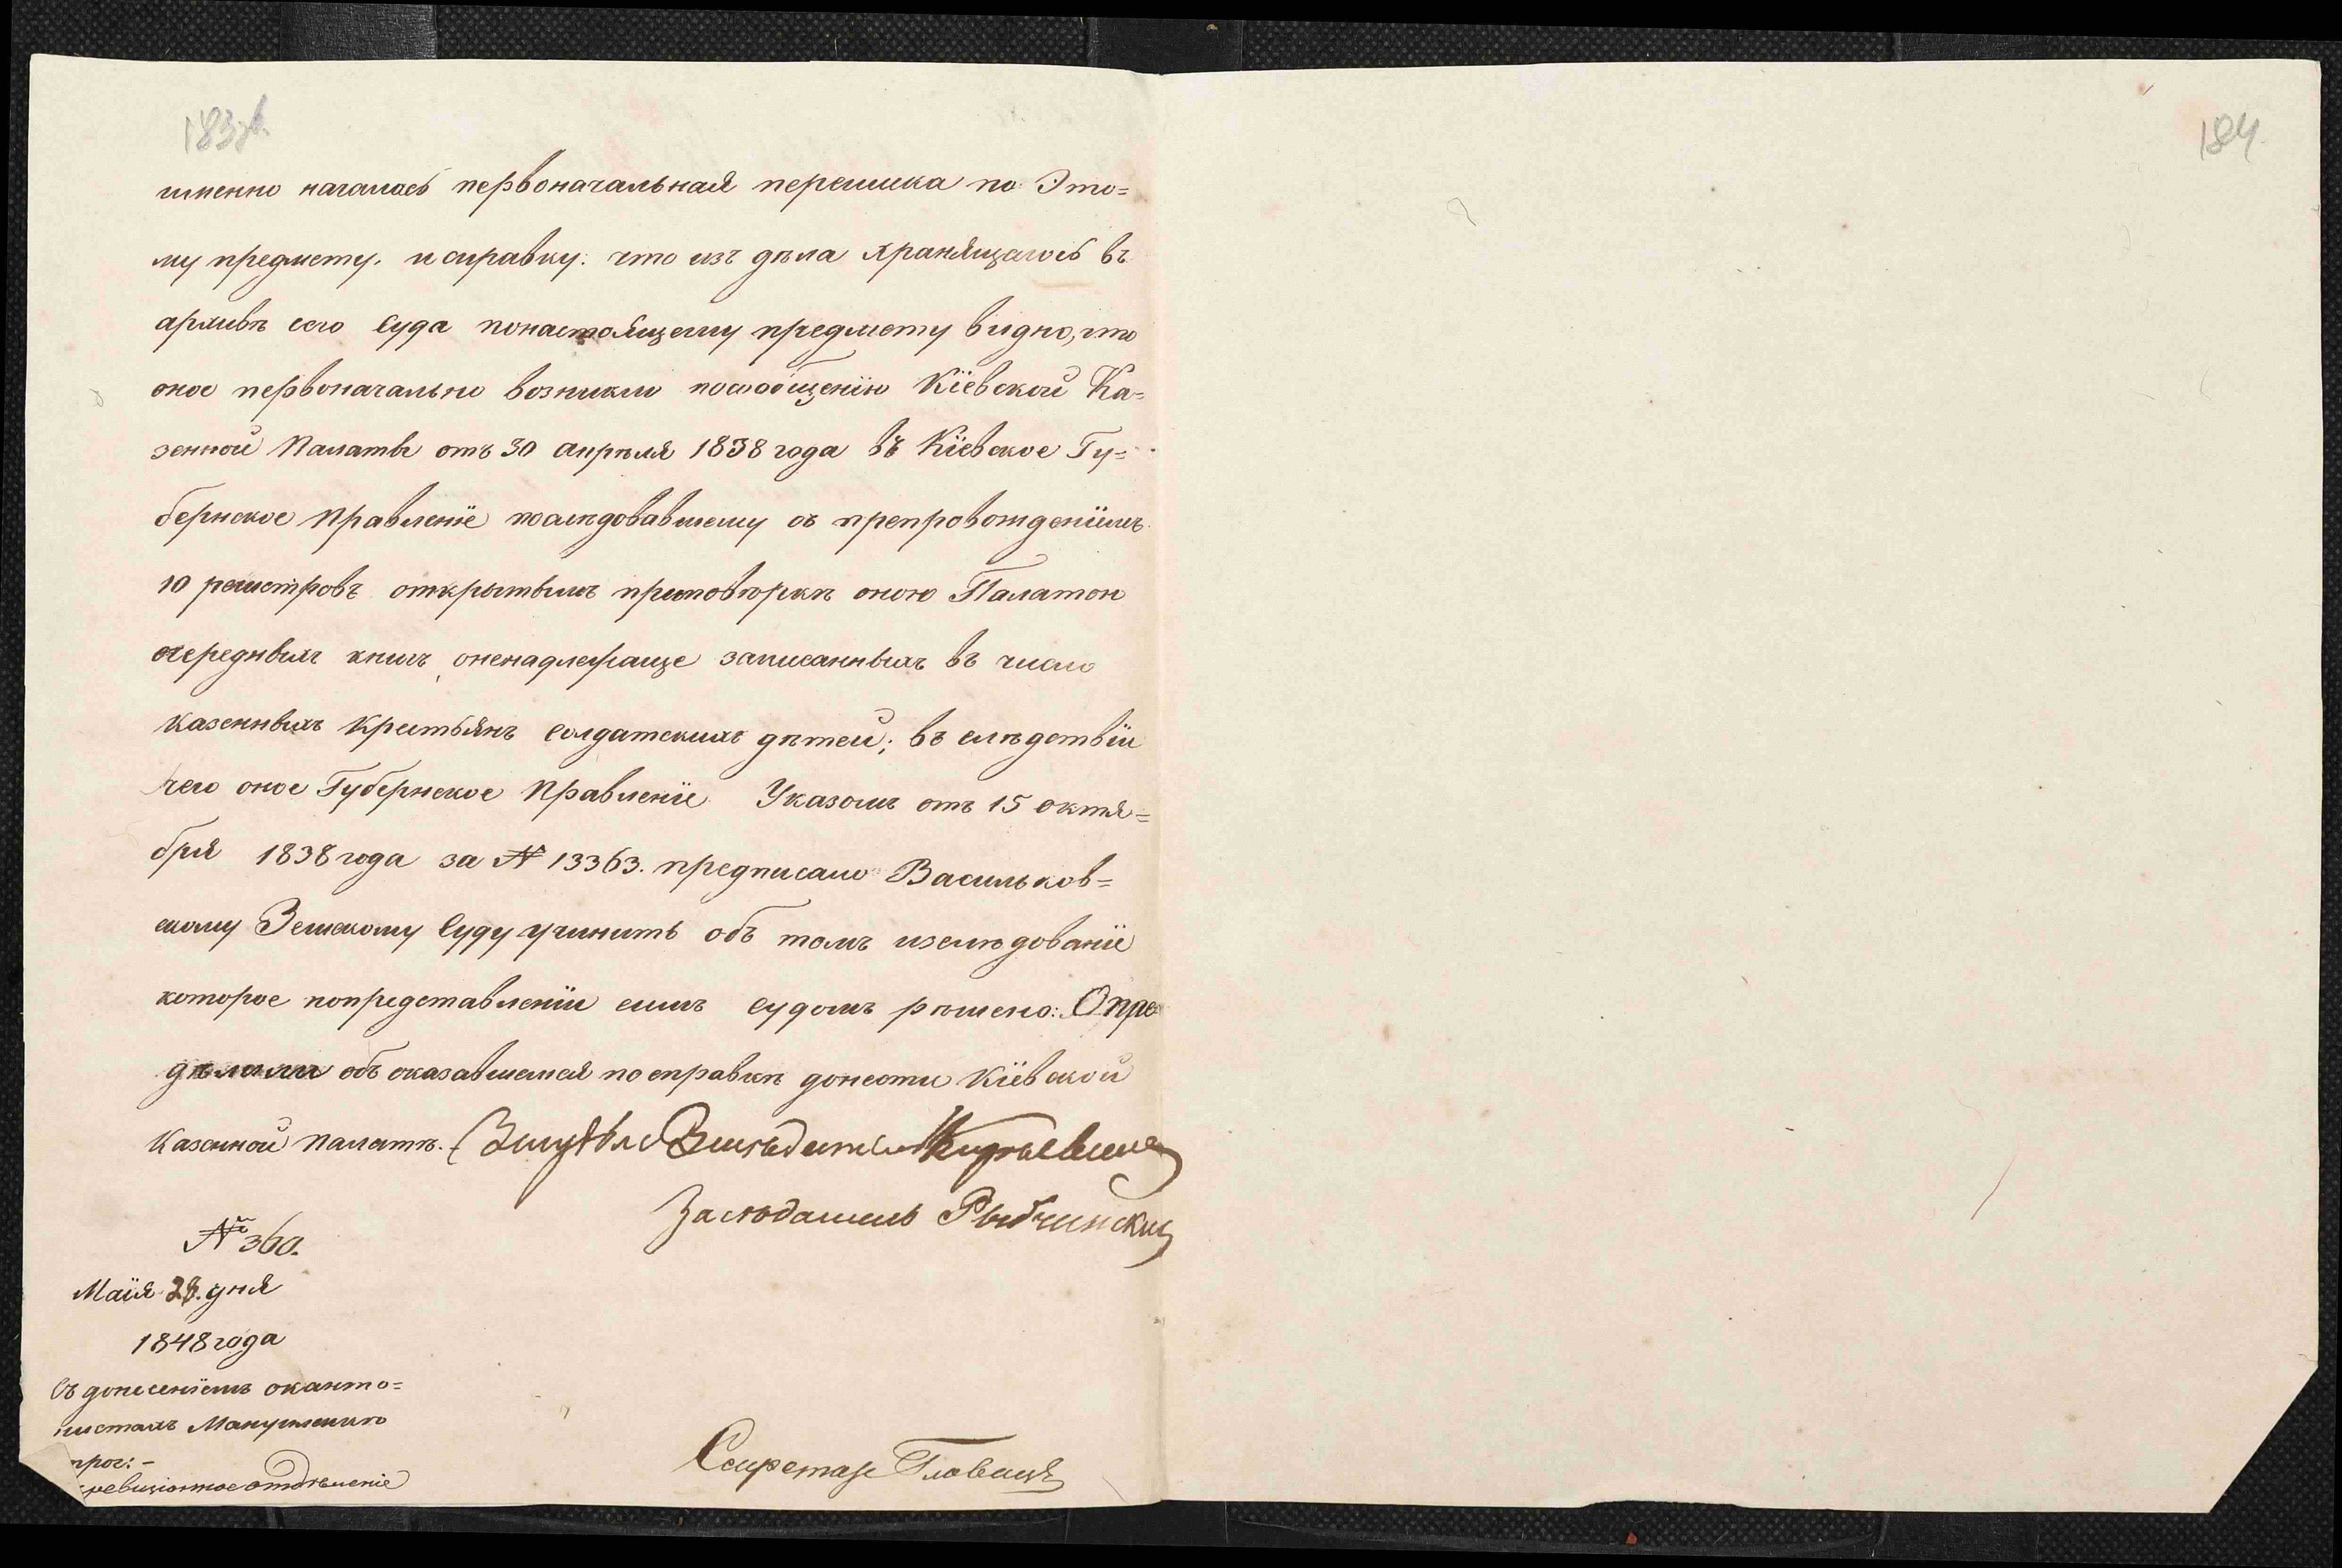 183об.
184
именно началась первоначальная переписка по Это=
му предмету. и справку: что изъ дѣла хранящагось въ
архивѣ сего Суда понастоящему предмету видно, что
оное первоначально возникло посообщенію Кіевской Ка=
зенной Палаты отъ 30 апрѣля 1838 года въ Кіевское Гу=
бернское Правленіе послѣдовавшему съ препровожденіемъ
10 регистровъ открытымъ приповѣркѣ оною Палатою
очередныхъ книгъ, оненадлежаще записанныхъ въ число
казенныхъ Крестьянъ Солдатскихъ дѣтей; въ слѣдствіи
чего оное Губернское Правленіе Указомъ отъ 15 октя=
бря 1838 года за № 13363. предписало Васильков=
скому Земскому Суду учинить объ томъ изслѣдованіе
которое попредставленіи симъ судомъ рѣшено: Опре
дѣлили объ оказавшемся по справкѣ донести Кіевской
Казенной Палатѣ.
Засѣдатель Рыбчинскій
№ 360.
Маія 28. дня
1848 года
Съ донесеніемъ оканто=
нистахъ Манулленко
проч: -
ревизіонное отдѣленіе
Секретарь